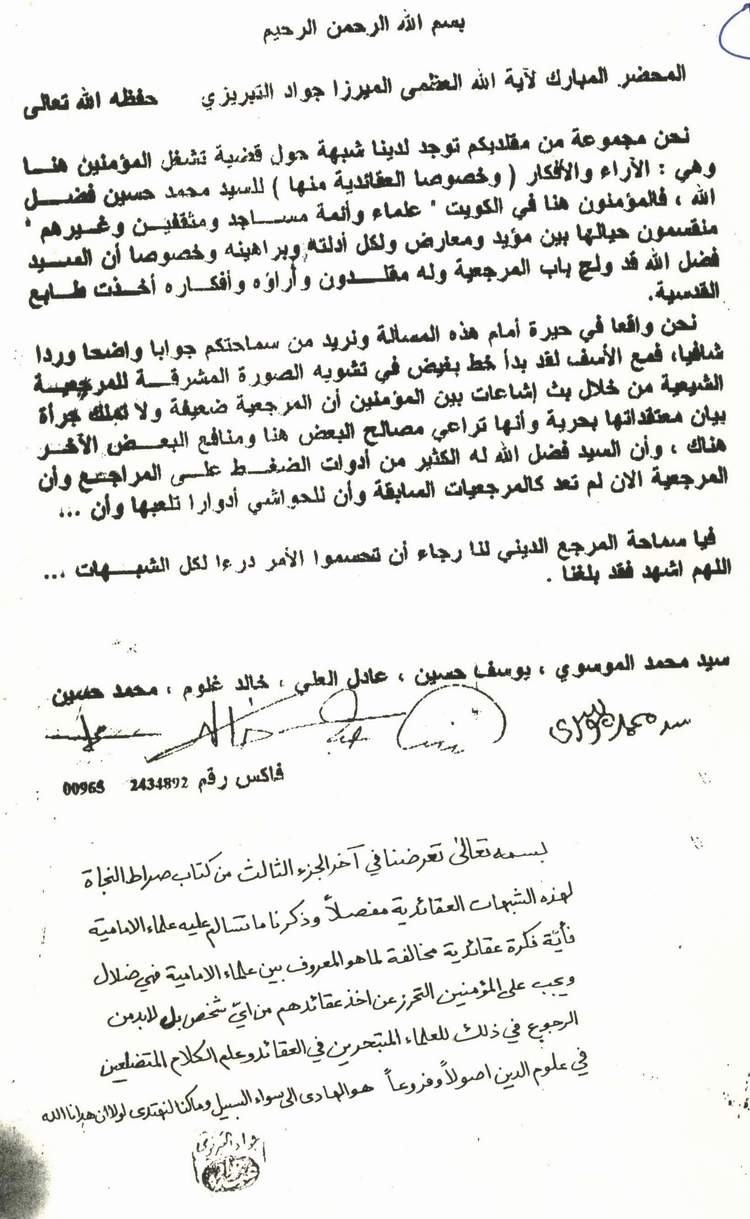 بسم الله الرحمن الرحيم
المحضر المبارك لآية الله العظمى الميرزا جواد التبريزي حفظه الله تعالى
نحن مجموعة من مقلديكم توجد لدينا شبهة حول قضية تشغل المؤمنين هنــا
وهي : الآراء والأفكار ( وخصوصا العقائدية منها ) للسيد محمد حسين فضــل
الله ، فالمؤمنون هنا في الكويت " علماء وأئمة مساجد ومثقفين وغيرهم "
منقسمون حيالها بين مؤيد ومعارض ولكل أدلته وبراهينه وخصوصا أن السيد
فضل الله قد ولج باب المرجعية وله مقلدون وأراؤه وأفكاره أخذت طابع
القدسية.
نحن واقعا في حيرة أمام هذه المسألة ونريد من سماحتكم جوابا واضحا وردا
شافيا، فمع الأسف لقد بدأ خط بغيض في تشويه الصورة المشرقة للمرجعية
الشيعية من خلال بث إشاعات بين المؤمنين أن المرجعية ضعيفة ولا تملك جرأة
بيان معتقداتها بحرية وأنها تراعي مصالح البعض هنا ومنافع البعض الآخر
هناك ، وأن السيد فضل الله له الكثير من أدوات الضغط على المراجع وأن
المرجعية الان لم تعد كالمرجعيات السابقة وأن للحواشي أدوارا تلعبها وأن ...
فيا سماحة المرجع الديني لنا رجاء أن تحسموا الأمر درءا لكل الشبهات ...
اللهم اشهد فقد بلغنا .
سيد محمد الموسوي ، يوسف حسين ، عادل العلي ، خالد غلوم ، محمد حسين
سيد محمد الموسوي
فاكس رقم 2434892 00965
بسمه تعالى تعرضنا في آخر الجزء الثالث من كتاب صراط النجاة
لهذه الشبهات العقائدية مفصلاً وذكرنا ما تسالم عليه علماء الامامية
فأيّة فكرة عقائدية مخالفة لما هو المعروف بين علماء الامامية فهي ضلال
ويجب على المؤمنين التحرز عن اخذ عقائدهم من ايّ شخص بل لابد من
الرجوع في ذلك للعلماء المتبحرين في العقائد وعلم الكلام المتضلعين
في علوم الدين اصولاً وفروعاً هو الهادى الى سواء السبيل وما كنا لنهتدى لولا ان هدانا الله
جواد التبريزي